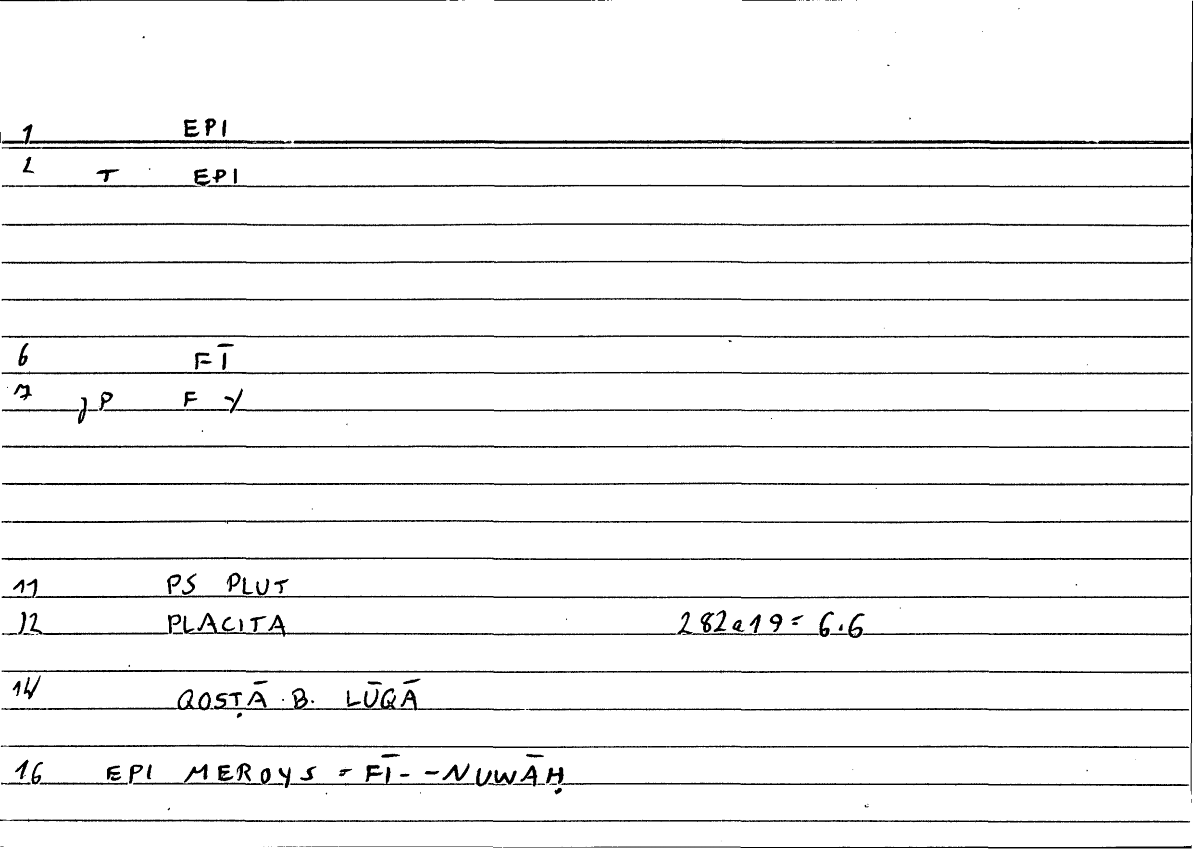 1 EPI
2 T EPI
6 FĪ
7 P F Y
11 PS PLUT
12 PLACITA 282a19 = 6.6
14 QOSṬĀ B. LŪQĀ
16 EPI MEROYS = FĪ- -NUWĀḤ